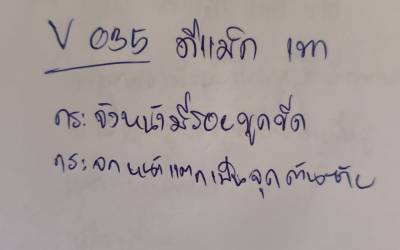 V 035 ดีแม็ค เทา
กระจังหน้ามีรอยขูดขีด
กระจกหน้าแตกเป็นจุด ด้านซ้าย